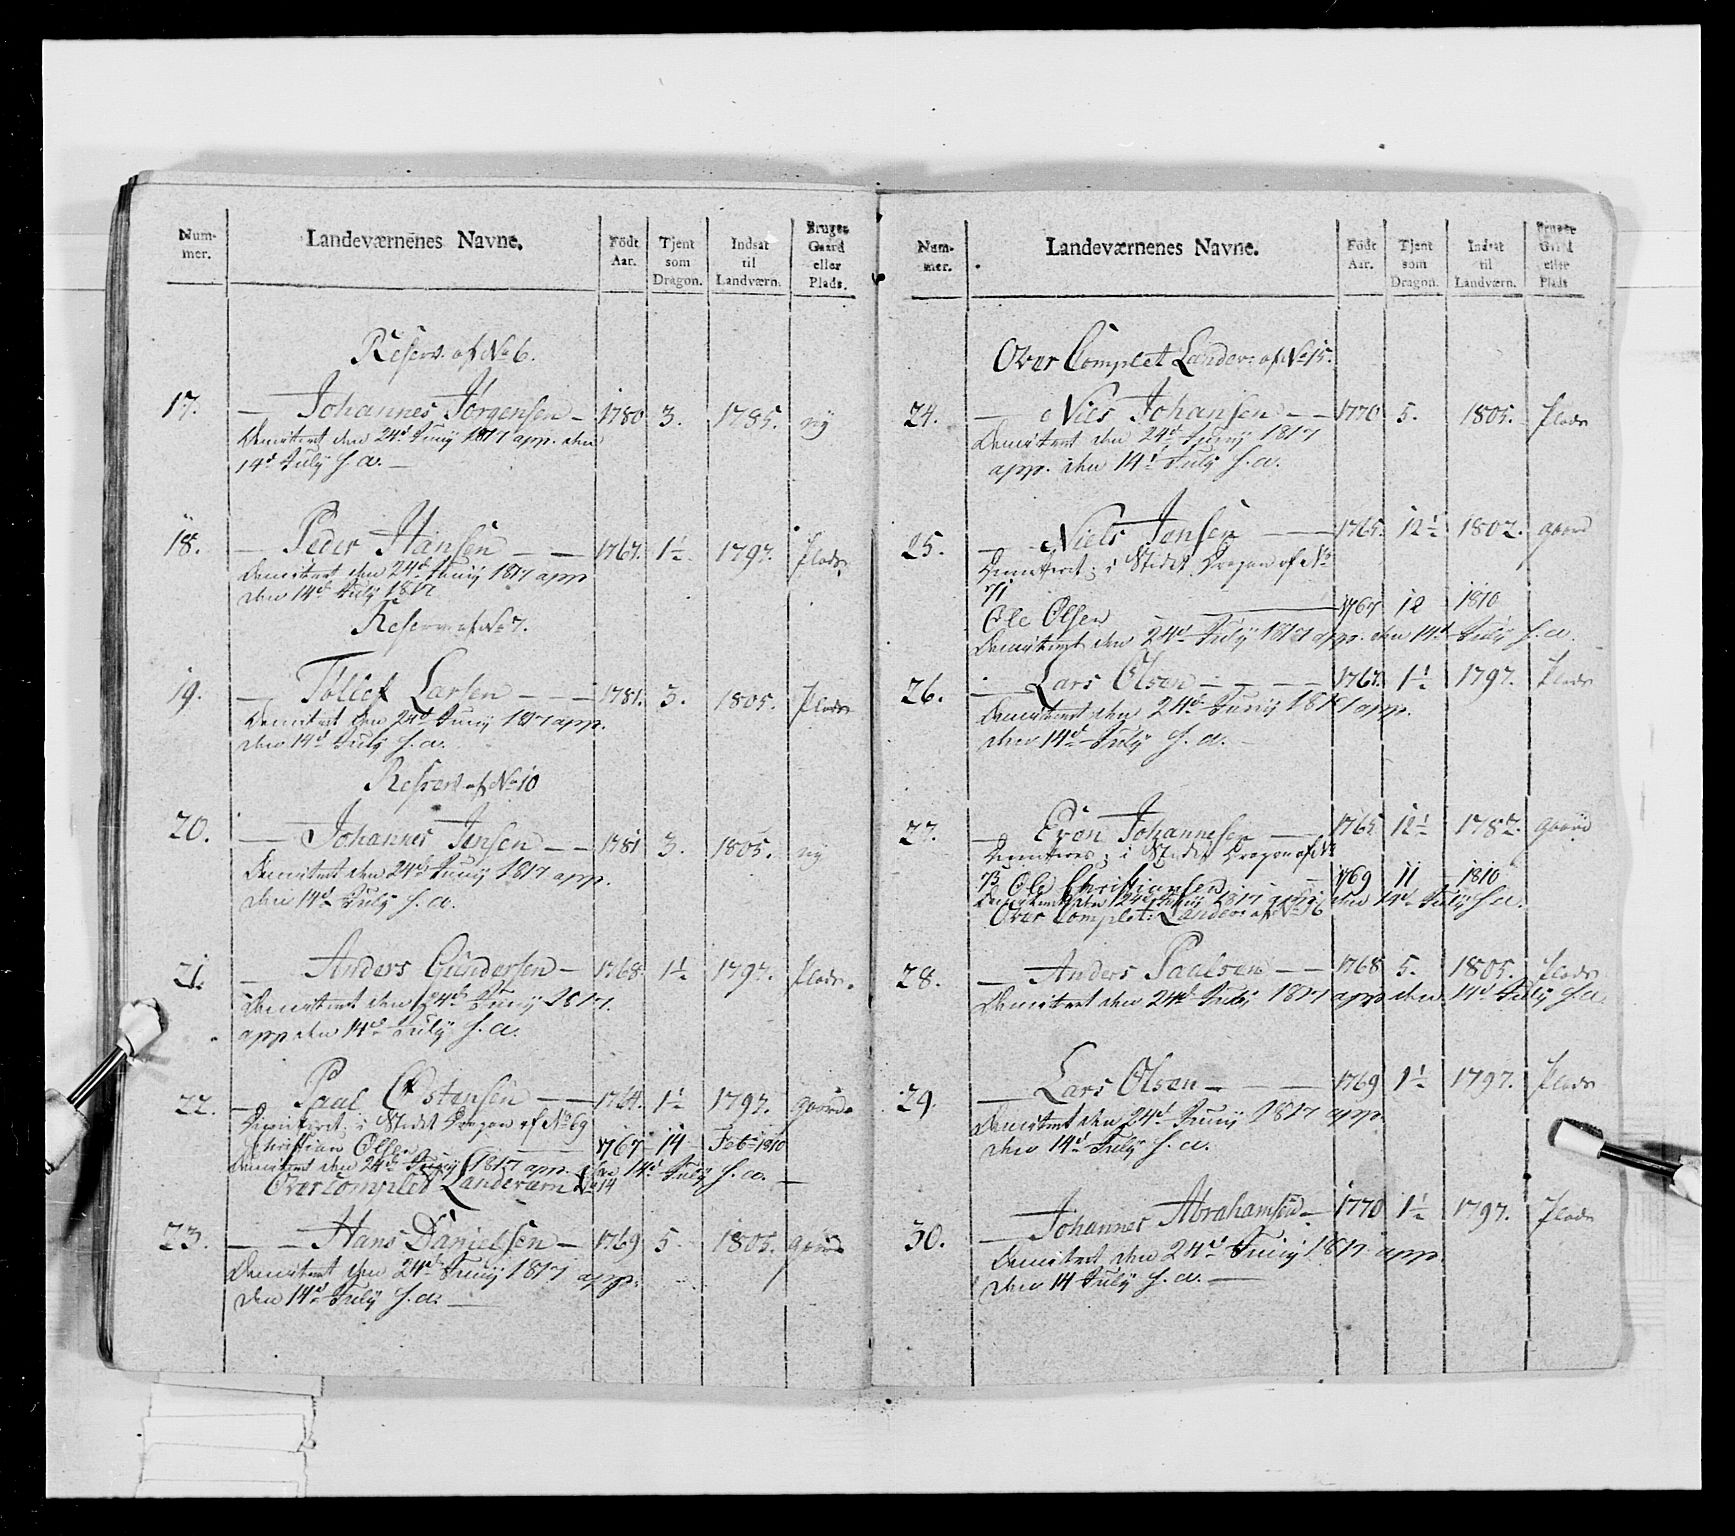 Num-mer. Landeværnenes Navne. Födt Aar. Tjent som Dragon. Indsat til Landværn. Bruger Gaard eller Plads.
Reserv. af No 6.
17. — Johannes Jörgensen — 1780 3. 1785. ny
Demitert den 24d Junÿ 1817 app. den
14d Julÿ s. a. —
18. — Peder Hansen — — 1767. 1½ 1797. Plads
Demitert den 24d Junÿ 1817 app
den 14d Julÿ 1817
Reserv. af No 7.
19. — Tollef Larsen — — — 1781. 3. 1805. Plads
Demitert den 24d Junÿ 1817 app.
den 14d Julÿ s. a.
Reserv. af No 10
20. — Johannes Jensen — — 1781 3. 1805. ny
Demitert den 24d Junÿ 1817 app.
den 14d Julÿ s. a.
21. — Anders Gundersen — 1768 1½ 1797. Plads.
Demitert den 24d Junÿ 1817.
app den 14d Julÿ s. a.
22. — Paul Ostensen — — 1764. 1½ 1797. gaard
Dimitteret, i Stedet Dragon af No 69
Christian Olsen — 1767 14 Feb 1810
Demitert den 24d Junÿ 1817 app. den 14d Julÿ s. a. —
Over Complet Landeværn No 14
23. — — Hans Danielsen — 1769 5. 1805. gaard
Demitert den 24d Junÿ 1817 app.
den 14d Julÿ s. a. —
Num-mer. Landeværnenes Navne. Födt Aar. Tjent som Dragon. Indsat til Landværn. Bruger Gaard eller Plads
Over Complet Landev: af No 15.
24. — Niels Johansen — — 1770 5. 1805. Plads
Demitert den 24d Junÿ 1817
app. den 14d Julÿ s. a.
25. — Niels Jensen — — 1765. 12½ 1802. gaard
Dimitteret, i Stedet Dragon af No
71
Ole Olsen — 1767 12 1810
Demitert den 24d Julÿ 1817 app. den 14d Julÿ s. a.
26. — Lars Olsen — — — 1767. 1½ 1797. Plads
Demitert den 24d Junÿ 1817 app.
den 14d Julÿ s. a. —
27. — Even Johannesen — 1765 12½ 1782. gaard
i Stedet Dragon af No
73 Ole Christiansen — 1769 11 1810
Demitert den 24d Junÿ 1817 app. den 14d Julÿ s. a
Over Complet: Landev: af No 16
28. — Anders Paulsen — — 1768 5. 1805. Plads
Demitert den 24d Julÿ 1817 app den 14d Julÿ s. a.
29. — Lars Olsen — — — 1769 1½ 1797. Plads
Demitert den 24d Junÿ 1817 app.
den 14d Julÿ s. a.
30. — Johannes Abrahamsen — 1770 1½ 1797. Plads
Demitert den 24d Junÿ 1817 app.
den 14 Julÿ s. a. —